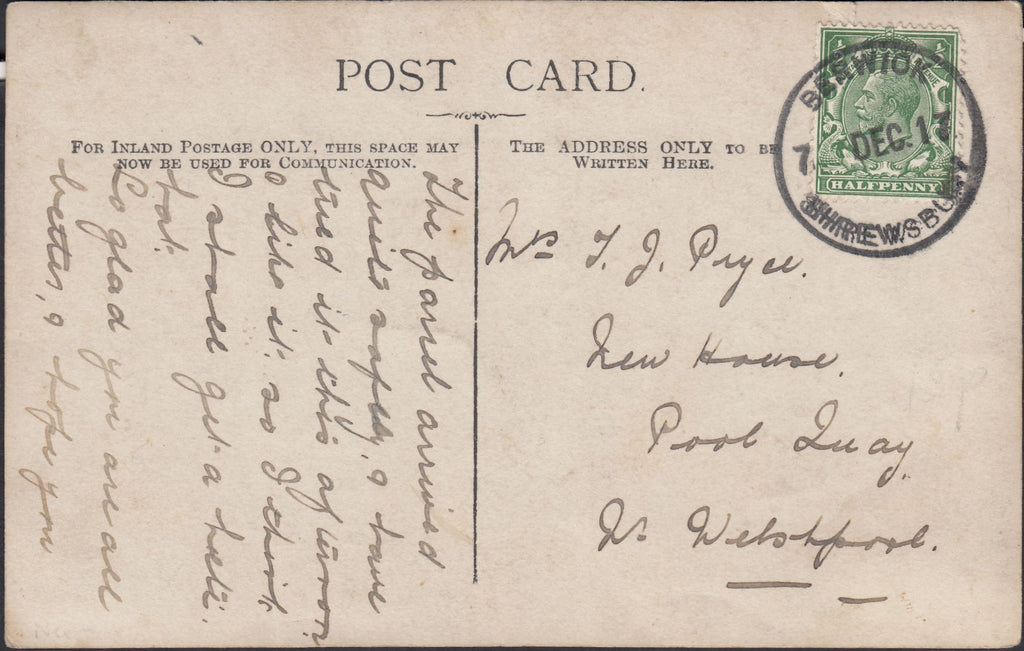 POST CARD.
FOR INLAND POSTAGE ONLY, THIS SPACE MAY
NOW BE USED FOR COMMUNICATION.
The parcel arrived
quite safely, & have
tried it this afternoon
& like it so I think
I shall get a belt
for it.
So glad you are all
better, & hope you
THE ADDRESS ONLY TO BE
WRITTEN HERE.
BERWICK
7. DEC. 1
SHREWSBURY
HALFPENNY
Mrs T. J. Pryce.
New House.
Pool Quay
Nr Welshpool.